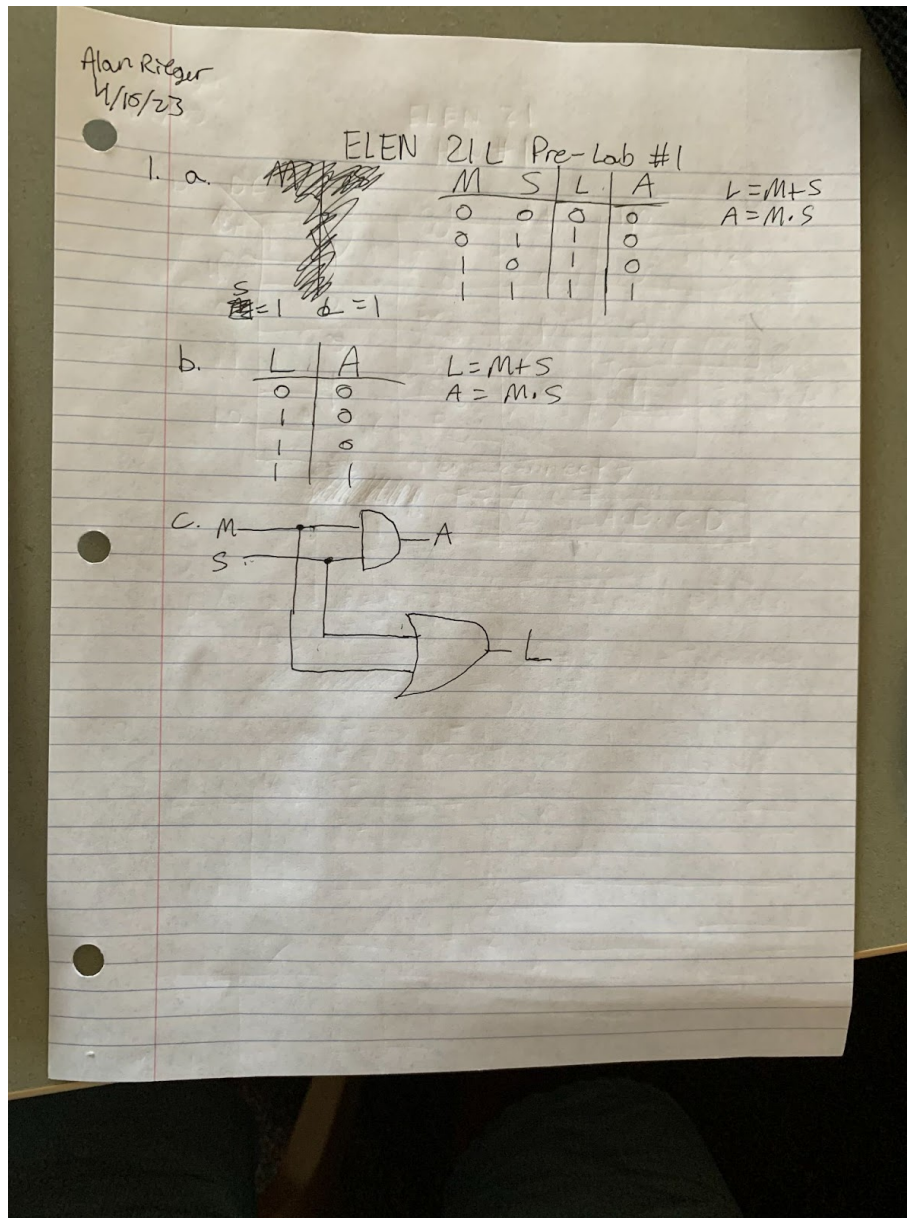 Alan Rieger
4/15/23
ELEN 21L Pre-Lab #1
1. a.
M S L A
0 0 0 0
0 1 1 0
1 0 1 0
1 1 1 1
L = M+S
A = M·S
S = 1 L = 1
b.
L A
0 0
1 0
1 0
1 1
L = M+S
A = M·S
C. M A
S
L